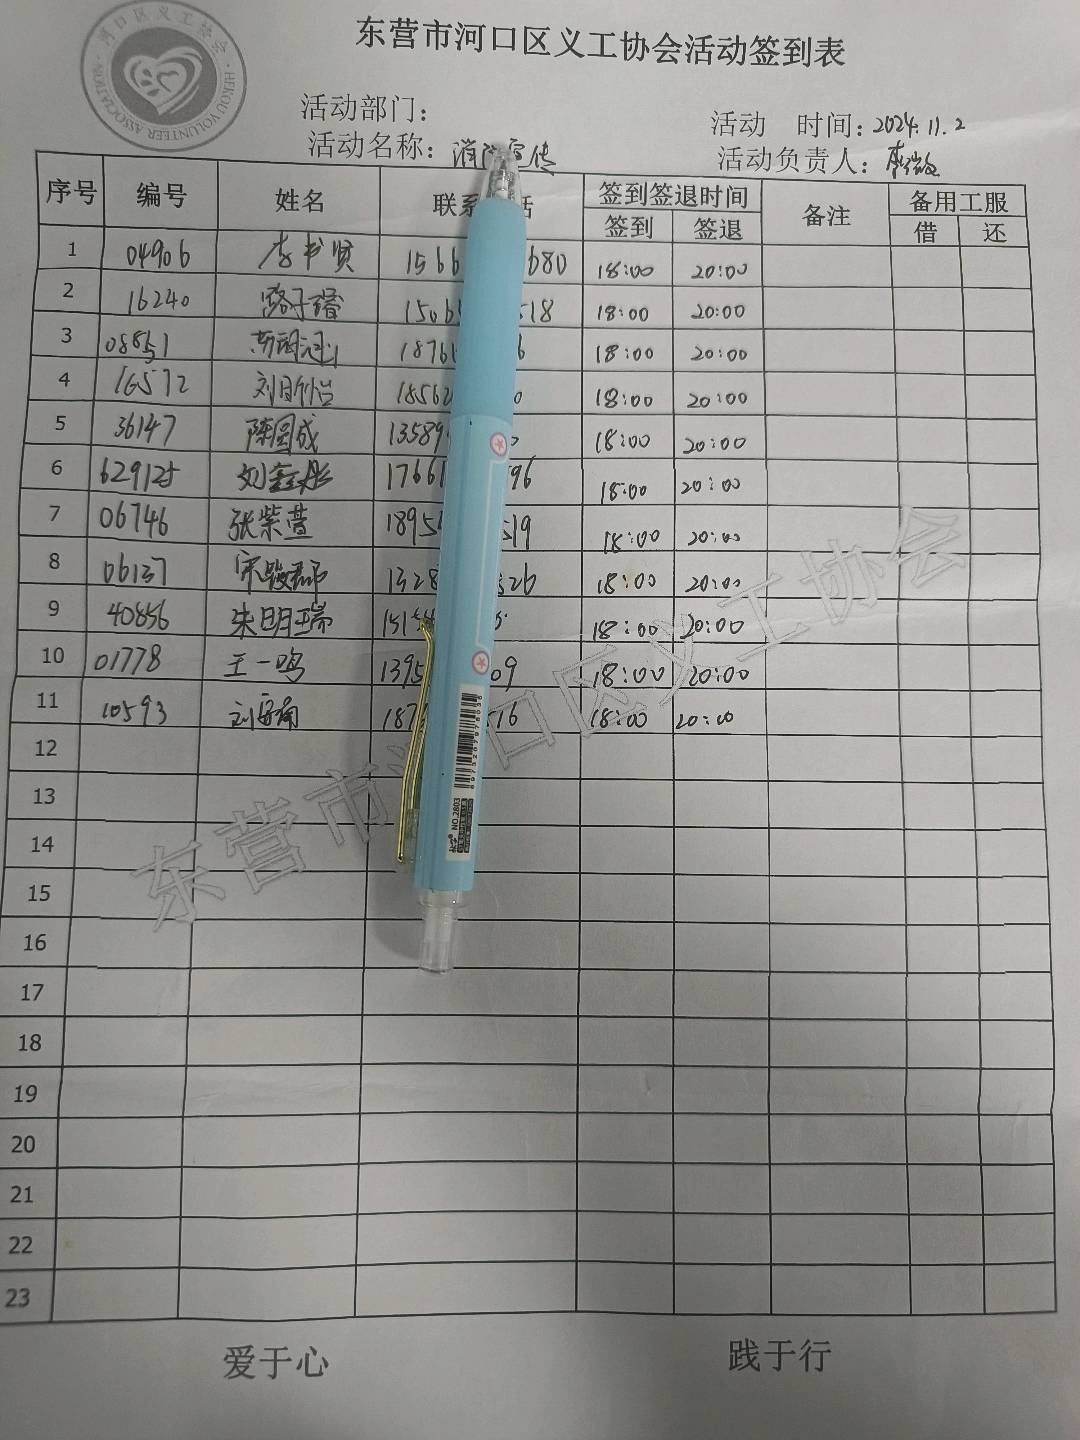 河口区义工协会
HEKOU VOLUNTEER ASSOCIATION
东营市河口区义工协会活动签到表
活动部门：
活动 时间：2024.11.2
活动名称：消防宣传
活动负责人：李
序号 编号 姓名 联系 话 签到签退时间 备注 备用工服
签到 签退 借 还
1 04906 李书贤 1566 680 18:00 20:00
2 16240 路子睿 1506 518 18:00 20:00
3 08851 1876 6 18:00 20:00
4 16572 刘日怡 18562 0 18:00 20:00
5 36147 陈国成 13589 0 18:00 20:00
6 629125 刘鑫彤 17661 596 18:00 20:00
7 06746 张紫萱 1895 519 18:00 20:00
8 06137 宋骏郡 1328 526 18:00 20:00
9 40856 朱明瑞 1515 5 18:00 20:00
10 01778 王一鸣 1395 09 18:00 20:00
11 10593 刘雨 187 516 18:00 20:00
12
13
14
15
16
17
18
19
20
21
22
23
NO.2803
东营市河口区义工协会
爱于心 践于行